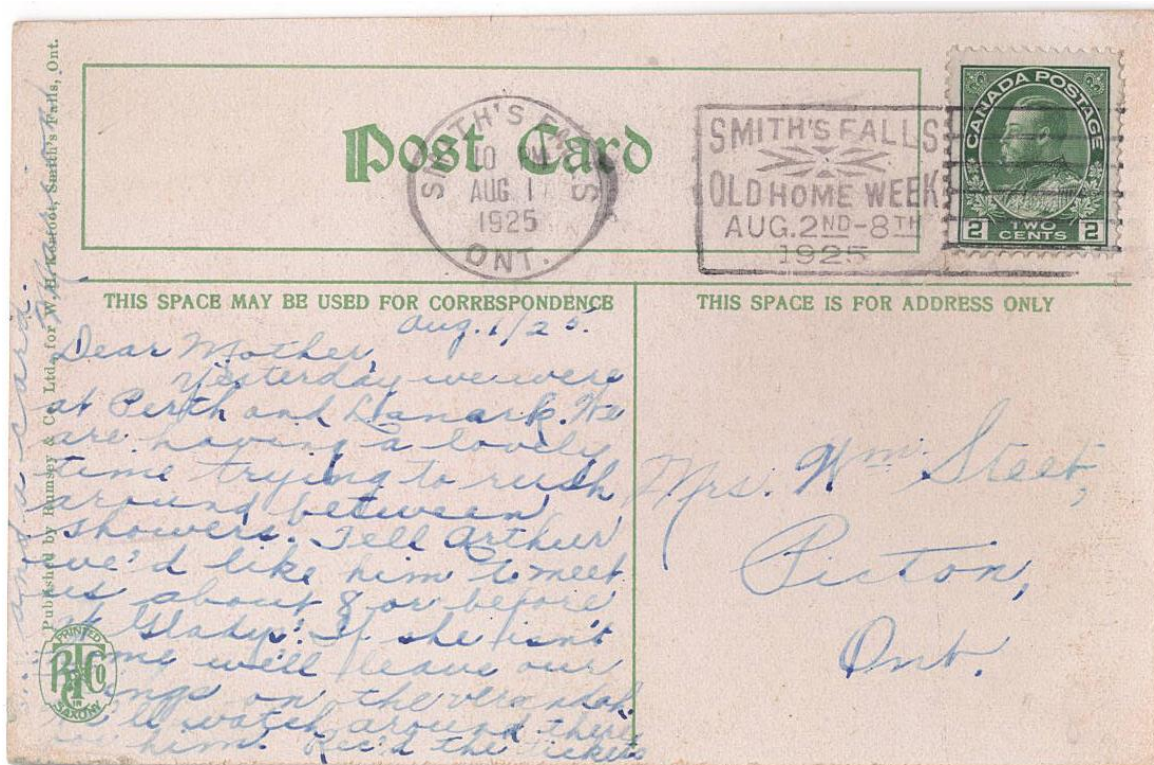 Post Card
SMITH'S FALLS
10 PM
AUG 1
1925
ONT.
SMITH'S FALLS
OLD HOME WEEK
AUG. 2ND-8TH
1925
CANADA POSTAGE
2 TWO CENTS 2
THIS SPACE MAY BE USED FOR CORRESPONDENCE
THIS SPACE IS FOR ADDRESS ONLY
Aug. 1/25.
Dear Mother,
Yesterday we were
at Perth and Lanark. We
are having a lovely
time trying to rush
around between
showers. Tell Arthur
we'd like him to meet
us about 8 or before
at Gladys'. If she isn't
home we'll leave our
things on the verandah.
We'll watch around there
for him. Rec'd the tickets
and card.
Mrs. Wm. Steet,
Picton,
Ont.
Published by Rumsey & Co. Ltd., for W. H. Smith's Falls, Ont.
PRINTED
IN
SAXONY